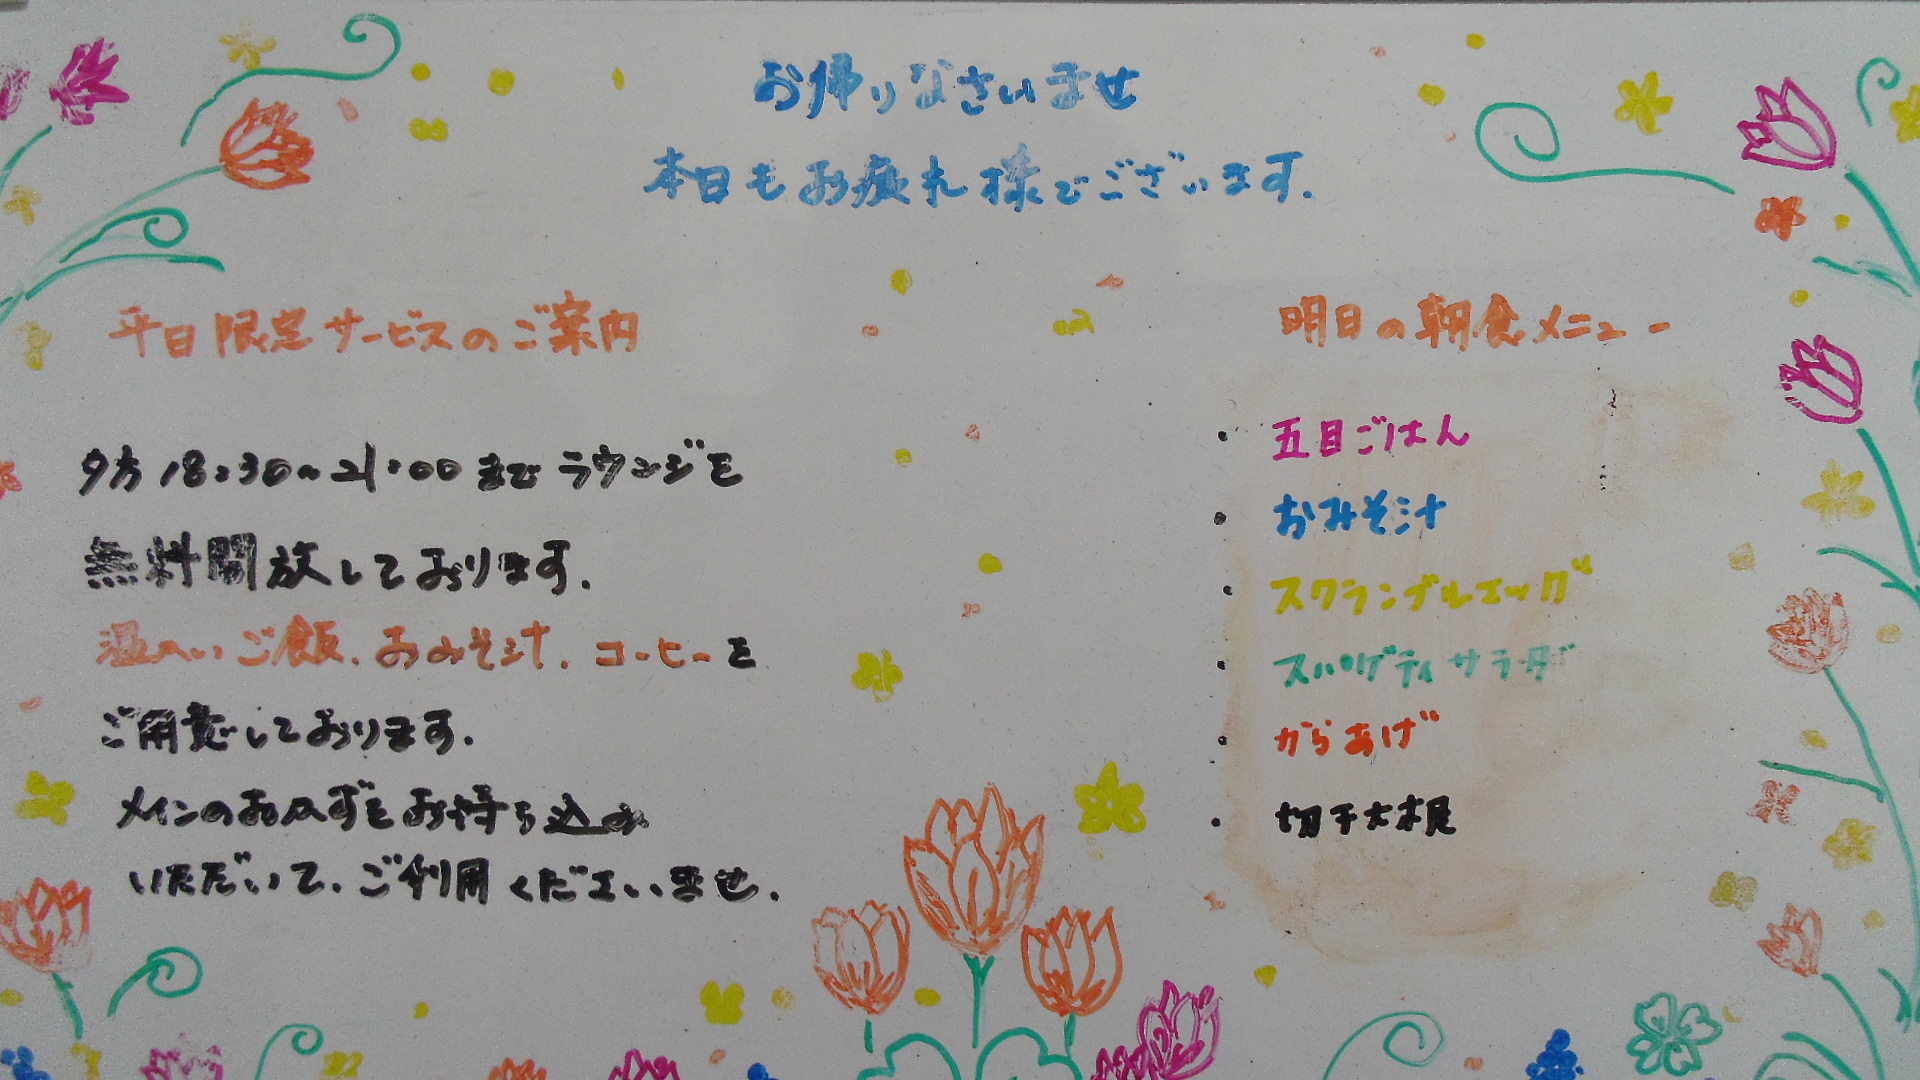 お帰りなさいませ
本日もお疲れ様でございます.
平日限定サービスのご案内
夕方18:30~21:00までラウンジを
無料開放しております.
温かいご飯.おみそ汁.コーヒーを
ご用意しております.
メインのおかずをお持ち込み
いただいて.ご利用くださいませ.
明日の朝食メニュー
・五目ごはん
・おみそ汁
・スクランブルエッグ
・スパゲティサラダ
・からあげ
・切干大根